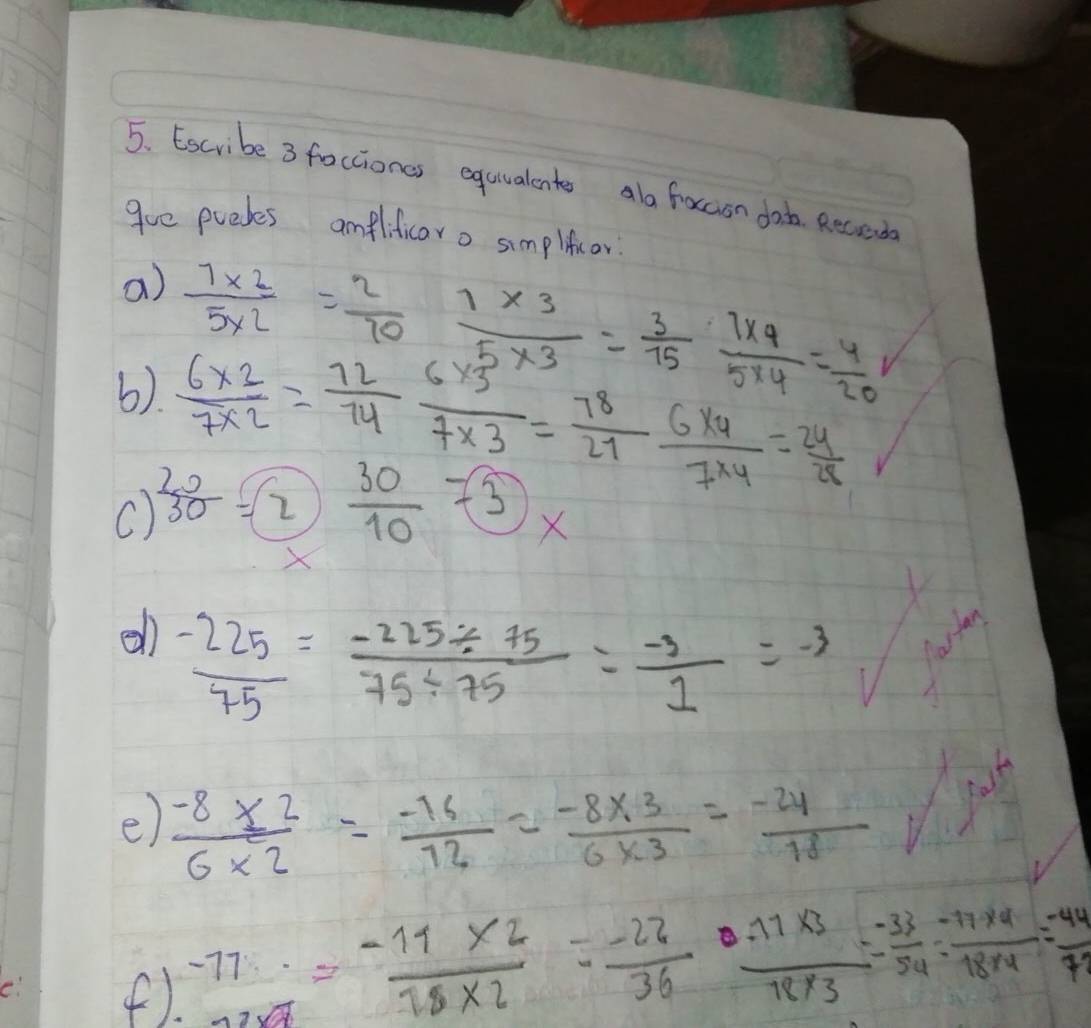 5. Escribe 3 fracciones equivalentes a la fracción dada. Recuerda
que puedes amplificar o simplificar:
a) 1 x 2 / 5 x 2 = 2 / 10 1 x 3 / 5 x 3 = 3 / 15 1 x 4 / 5 x 4 = 4 / 20 ✓
b). 6 x 2 / 7 x 2 = 12 / 14 6 x 3 / 7 x 3 = 18 / 21 6 x 4 / 7 x 4 = 24 / 28 ✓
c) 20 / 30 = 2 x 30 / 10 = 3 x
d) -225 / 75 = -225 ÷ 75 / 75 ÷ 75 = -3 / 1 = -3 ✓ faltan
e) -8 x 2 / 6 x 2 = -16 / 12 = -8 x 3 / 6 x 3 = -24 / 18 ✓ falta
f). -11 = -11 x 2 / 18 x 2 = -22 / 36 -11 x 3 / 18 x 3 = -33 / 54 = -11 x 4 / 18 x 4 = -44 ✓